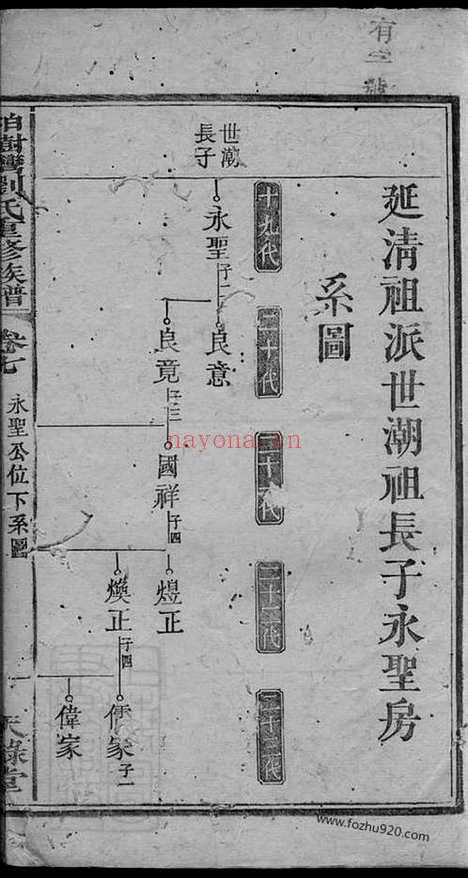 有一號
延清祖派世潮祖長子永聖房
系圖
十九代
二十代
二十一代
二十二代
二十三代
世潮
長子
永聖 子二
良意
良竟 子三
國祥 子四
煜正
煥正 子四
儒家 子一
偉家
柏樹灣劉氏重修族譜
卷七
永聖公位下系圖
一
天祿堂
nayona.cn
www.fozhu920.com